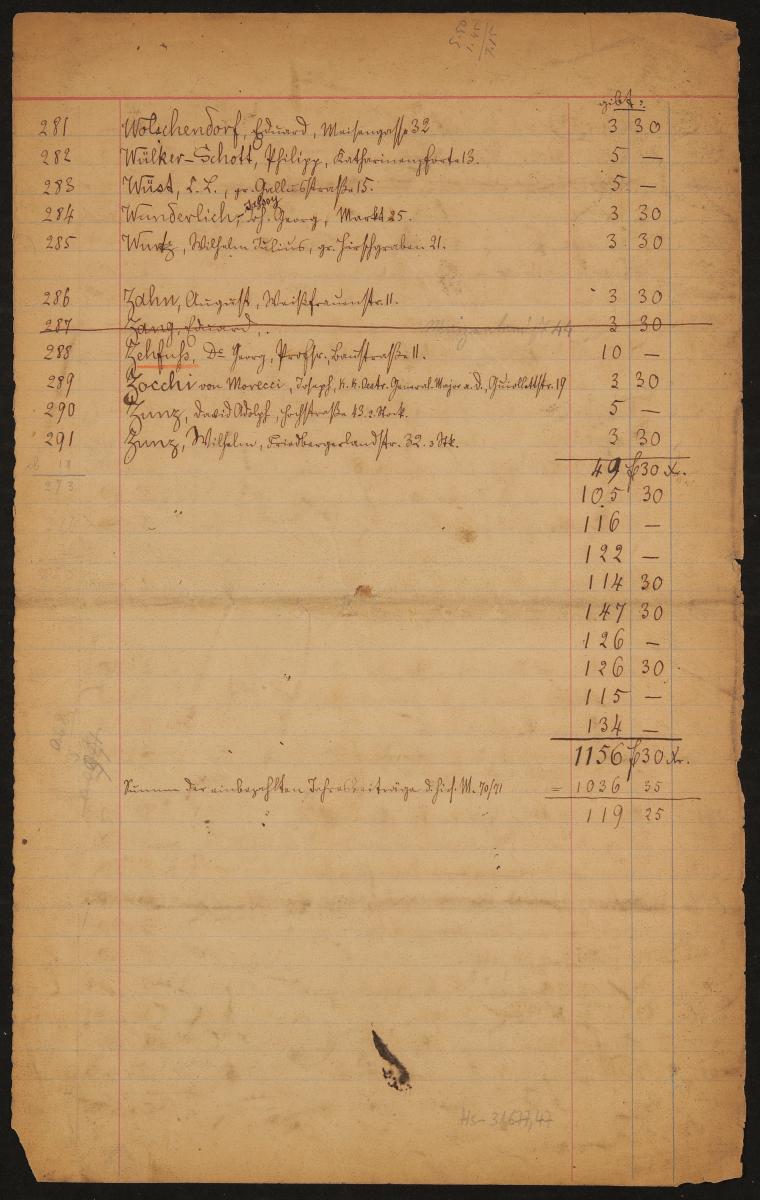 gibt:
281 Wolschendorf, Eduard, Meisengasse 32 3 30
282 Wülker-Schott, Philipp, Katharinenpforte 13. 5 —
283 Wüst, C. L., gr. Gallusstraße 15. 5 —
284 Wunderlich, Joh. Georg, Markt 25. 3 30
285 Wurtz, Wilhelm Julius, gr. Hirschgraben 21. 3 30
286 Zahn, August, Weißfrauenstr. 11. 3 30
287 Zang, Eduard, 44 3 30
288 Zehfuß, Dr Georg, Profsr., Baustraße 11. 10 —
289 Zocchi von Morecci, Joseph, K. K. Oestr. General Major a. d., Guiollettstr. 19 3 30
290 Zunz, David Adolph, Hochstraße 43. 2. Stock. 5 —
291 Zunz, Wilhelm, Friedbergerlandstr. 32. 3 Stk. 3 30
18 49 f 30 Kr.
273 105 30
116 —
122 —
114 30
147 30
126 —
126 30
115 —
134 —
1156 f 30 Kr.
Summe der einbezahlten Jahresbeiträge 70/71 = 1036 35
119 25
Hs-31677,47